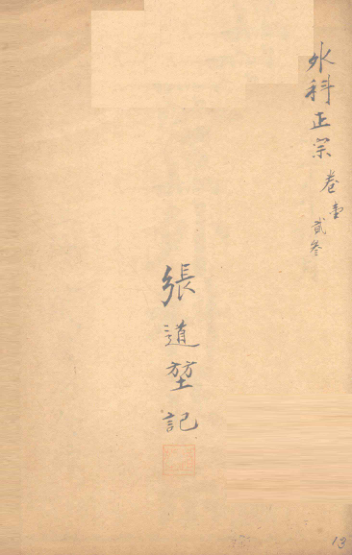 外科正宗 卷壹 貳 參
張道堃記
13